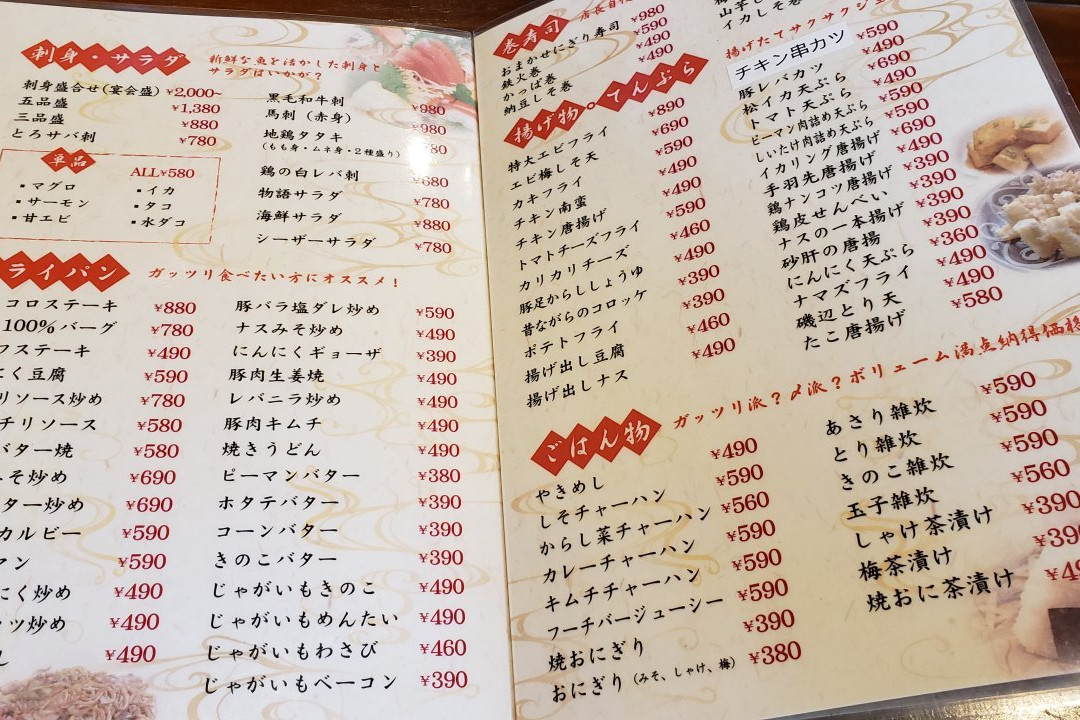 刺身・サラダ
新鮮な魚を活かした刺身と
サラダはいかが？
刺身盛合せ(宴会盛) ¥2,000~
五品盛 ¥1,380
三品盛 ¥880
とろサバ刺 ¥780
単品
ALL¥580
▪マグロ ▪イカ
▪サーモン ▪タコ
▪甘エビ ▪水ダコ
黒毛和牛刺 ¥980
馬刺（赤身） ¥980
地鶏タタキ
(もも身・ムネ身・2種盛り)
鶏の白レバ刺 ¥680
物語サラダ ¥780
海鮮サラダ ¥880
シーザーサラダ ¥780
ライパン
ガッツリ食べたい方にオススメ！
コロステーキ ¥880
100%バーグ ¥780
ステーキ ¥490
にく豆腐 ¥590
リソース炒め ¥780
チリソース ¥580
バター焼 ¥580
そ炒め ¥690
ター炒め ¥690
カルビー ¥590
マン ¥590
にく炒め ¥490
ツ炒め ¥490
¥490
豚バラ塩ダレ炒め ¥590
ナスみそ炒め ¥490
にんにくギョーザ ¥390
豚肉生姜焼 ¥490
レバニラ炒め ¥490
豚肉キムチ ¥490
焼きうどん ¥490
ピーマンバター ¥380
ホタテバター ¥390
コーンバター ¥390
きのこバター ¥390
じゃがいもきのこ ¥490
じゃがいもめんたい ¥490
じゃがいもわさび ¥460
じゃがいもベーコン ¥390
巻寿司
店長自
おまかせにぎり寿司 ¥980
鉄火巻 ¥590
かっぱ巻 ¥490
納豆しそ巻 ¥490
山芋し
イカしそ巻
揚げ物・てんぷら
揚げたてサクサクジュ
特大エビフライ ¥890
エビ梅しそ天 ¥690
カキフライ ¥590
チキン南蛮 ¥490
チキン唐揚げ ¥490
トマトチーズフライ ¥590
カリカリチーズ ¥460
豚足からししょうゆ ¥490
昔ながらのコロッケ ¥390
ポテトフライ ¥390
揚げ出し豆腐 ¥460
揚げ出しナス ¥490
チキン串カツ ¥590
豚レバカツ ¥490
松イカ天ぷら ¥690
トマト天ぷら ¥490
ピーマン肉詰め天ぷら ¥590
しいたけ肉詰め天ぷら ¥490
イカリング唐揚げ ¥690
手羽先唐揚げ ¥490
鶏ナンコツ唐揚げ ¥390
鶏皮せんべい ¥390
ナスの一本揚げ ¥390
砂肝の唐揚 ¥360
にんにく天ぷら ¥490
ナマズフライ ¥490
磯辺とり天 ¥580
たこ唐揚げ
ごはん物
ガッツリ派？〆派？ボリューム満点納得価格
やきめし ¥490
しそチャーハン ¥590
からし菜チャーハン ¥560
カレーチャーハン ¥590
キムチチャーハン ¥590
フーチバージューシー ¥590
焼おにぎり ¥390
おにぎり (みそ、しゃけ、梅) ¥380
あさり雑炊 ¥590
とり雑炊 ¥590
きのこ雑炊 ¥590
玉子雑炊 ¥560
しゃけ茶漬け ¥390
梅茶漬け ¥390
焼おに茶漬け